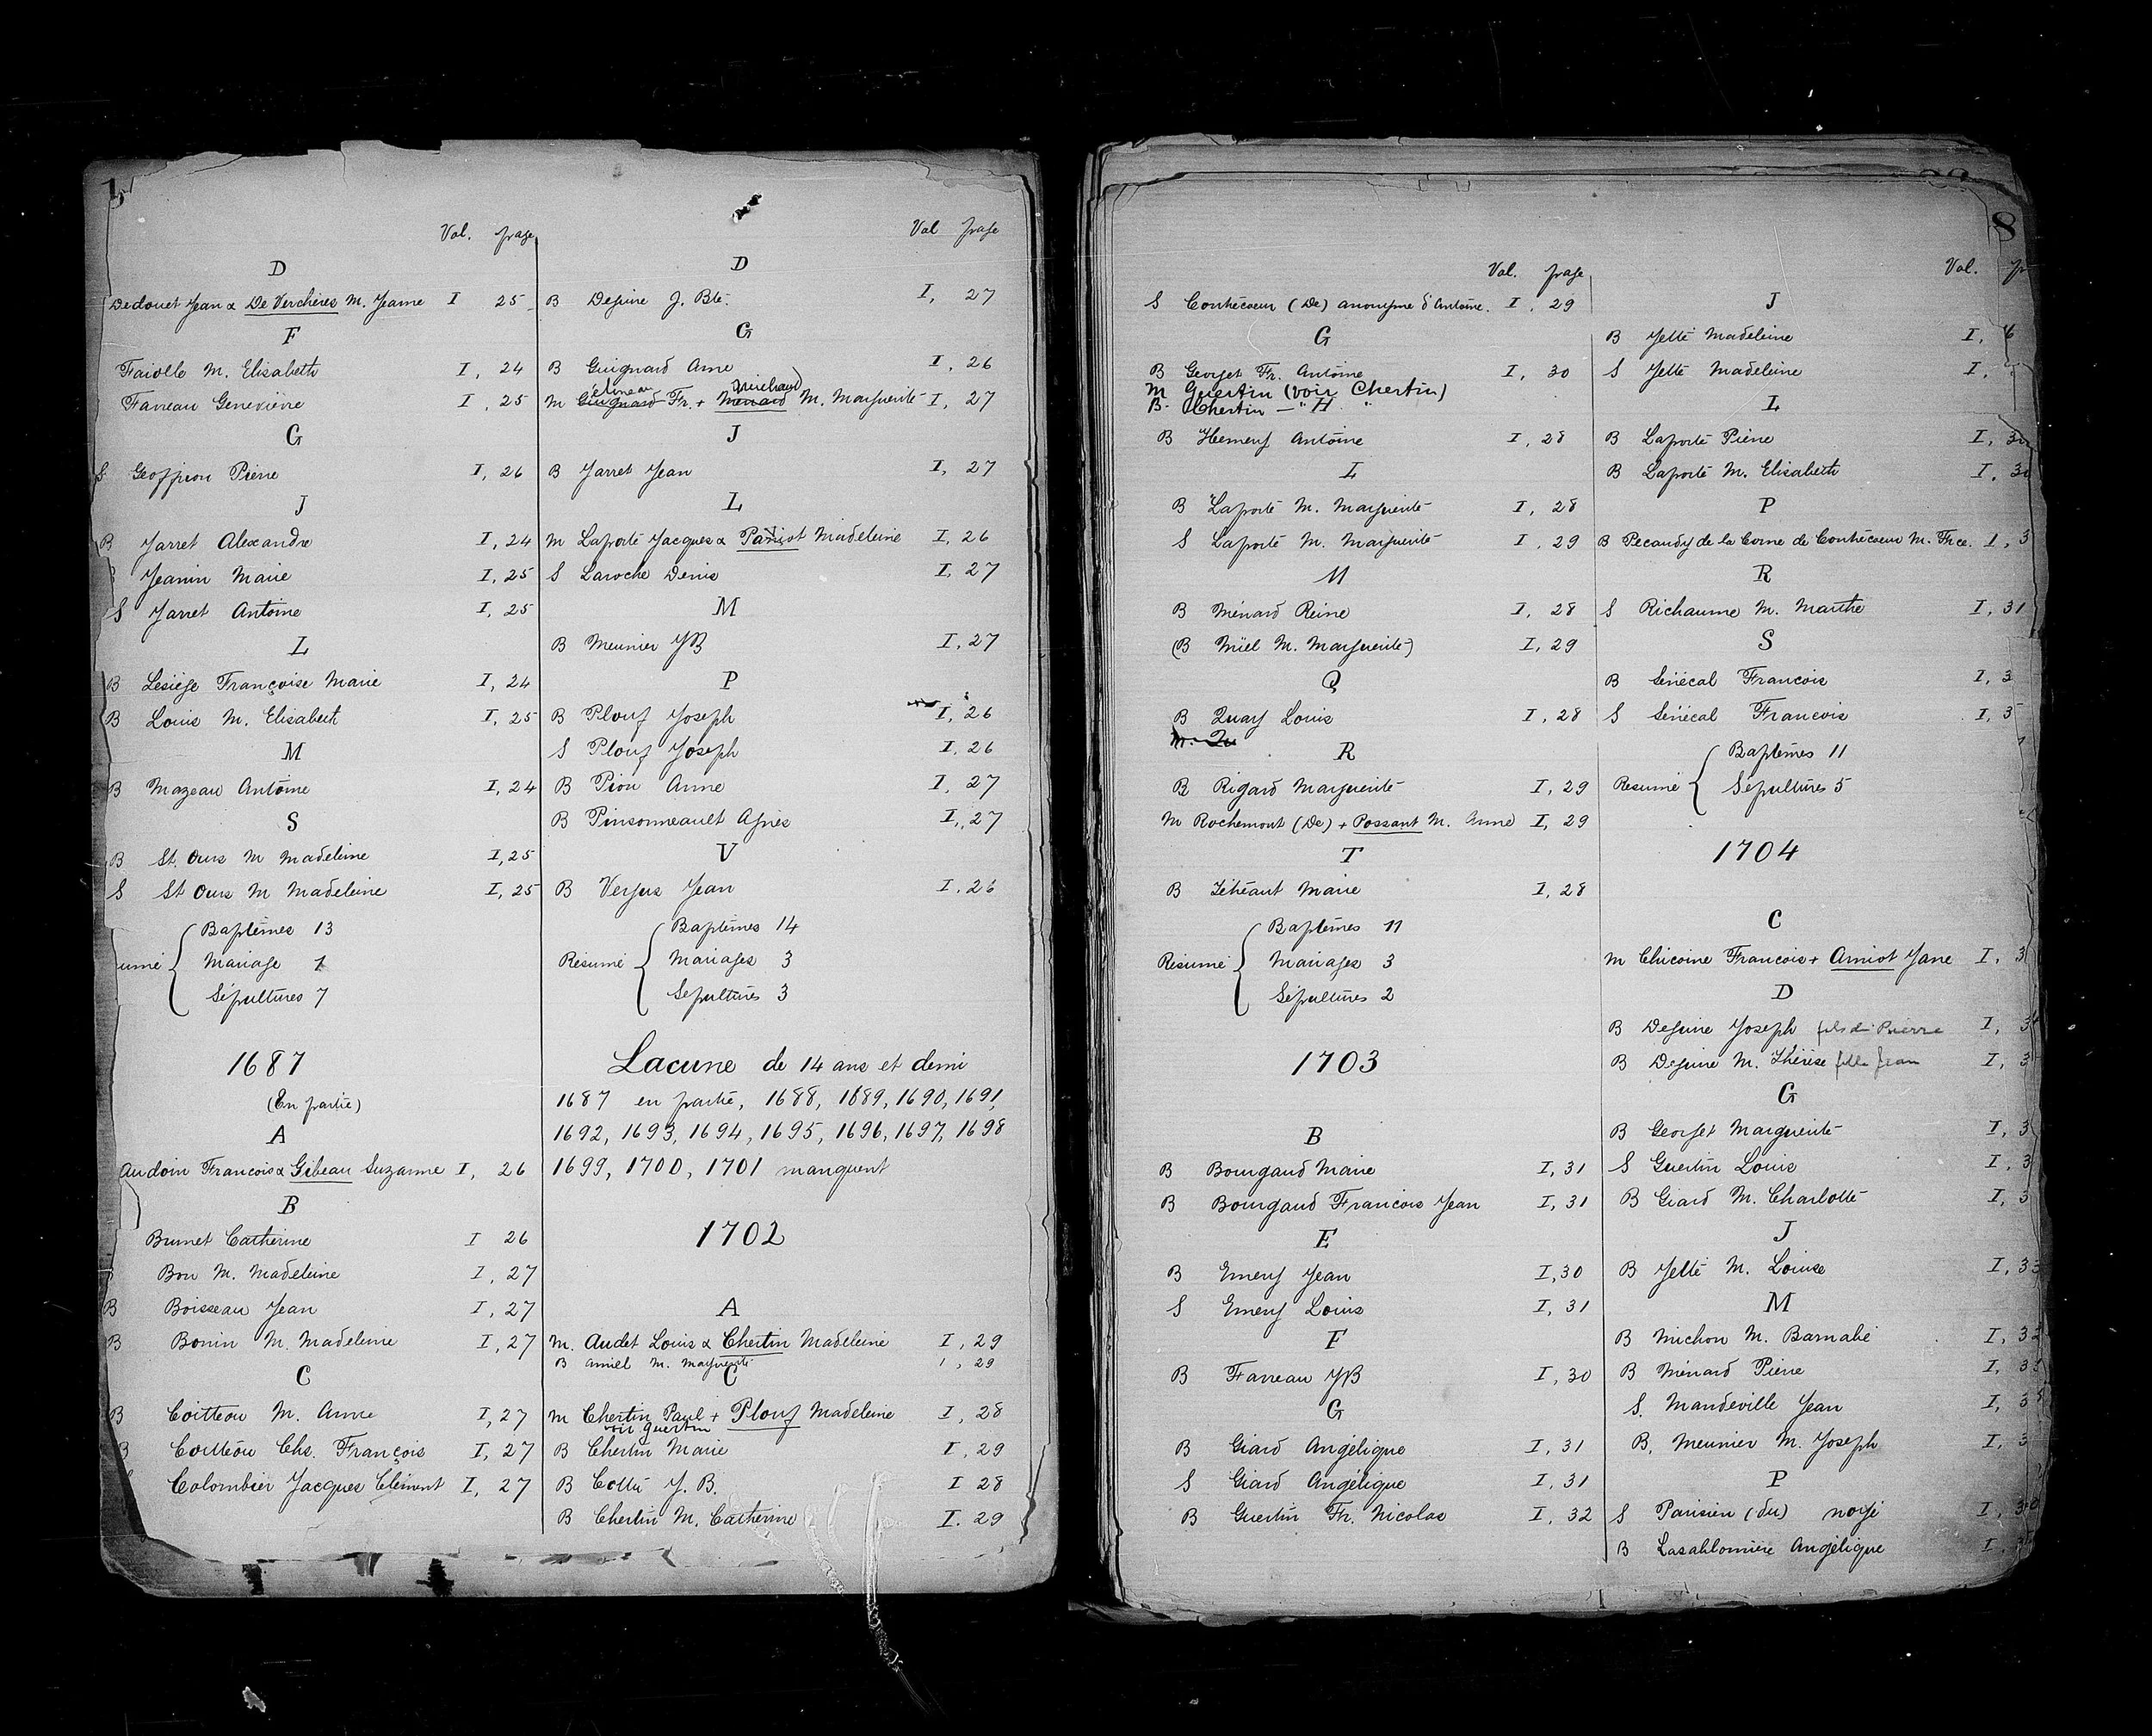 5
Vol. page
D
Dedouet Jean & De Verchères M. Jeanne I 25
F
Faiolle M. Elisabeth I, 24
Farreau Geneviève I, 25
G
S Geoffrion Pierre I, 26
J
B Jarret Alexandre I, 24
Jeanin Marie I, 25
S Jarret Antoine I, 25
L
B Lesiége Françoise Marie I, 24
B Louis M. Elisabeth I, 25
M
B Mazeau Antoine I, 24
S
B St. Ours M Madeleine I, 25
S St Ours M Madeleine I, 25
Baptêmes 13
umé Mariage 1
Sépultures 7
1687
(En partie)
A
Audoin Francois & Gibeau Suzanne I, 26
B
Brunet Catherine I 26
Bon M. Madeleine I, 27
B Boisseau Jean I, 27
B Bonin M. Madeleine I, 27
C
B Coitteou M. Anne I, 27
B Coitteou Chs. François I, 27
Colombier Jacques Clément I, 27
Vol page
D
B Dejune J. Bte. I, 27
G
B Guignard Anne I, 26
M Guignard Fr. + Menard M. Marguerite I, 27
J
B Jarret Jean I, 27
L
M Laporte Jacques & Paviot Madeleine I, 26
S Laroche Denis I, 27
M
B Meunier JB I, 27
P
B Plouf Joseph I, 26
S Plouf Joseph I, 26
B Pion Anne I, 27
B Pinsonneault Agnès I, 27
V
B Versus Jean I. 26
Baptêmes 14
Résumé Mariages 3
Sépultures 3
Lacune de 14 ans et demi
1687 en partie, 1688, 1689, 1690, 1691,
1692, 1693, 1694, 1695, 1696, 1697, 1698
1699, 1700, 1701 manquent
1702
A
M. Audet Louis & Chertin Madeleine I, 29
B Amiel M. Marguerite I, 29
C
M Chertin Paul + Plouf Madeleine I, 28
voir Guertin
B Chertin Marie I, 29
B Cottu J. B. I 28
B Chertin M. Catherine I. 29
8
Vol. page
S Contrécoeur (De) anonyme d'Antoine. I, 29
G
B Georget Fr. Antoine I, 30
M Guertin (voir Chertin)
B- Chertin — " H "
B Hemery Antoine I, 28
L
B Laporte M. Marguerite I, 28
S Laporte M. Marguerite I, 29
M
B Ménard Reine I, 28
(B Miel M. Marguerite) I, 29
Q
B Quay Louis I, 28
M. Qu
R
B Rigard Marguerite I, 29
M Rochemont (De) + Possant M. Anne I, 29
T
B Téhéant Marie I, 28
Baptêmes 11
Résumé Mariages 3
Sépultures 2
1703
B
B Bourgaud Marie I, 31
B Bourgaud Francois Jean I, 31
E
B Emery Jean I, 30
S Emery Louis I, 31
F
B Farreau JB I, 30
G
B Giard Angélique I, 31
S Giard Angélique I, 31
B Guertin Fr. Nicolas I, 32
Vol.
J
B Jetté Madeleine I,
S Jetté Madeleine I,
L
B Laporte Pierre I, 30
B Laporte M. Elisabeth I, 30
P
B Pecaudy de la Corne de Contrécoeur M. Frce. I, 3
R
S Richaume M. Marthe I, 31
S
B Sénécal Francois I, 3
S Sénécal Francois I, 3
Baptêmes 11
Resumé
Sépultures 5
1704
C
M Chicoine Francois + Amiot Jane I, 3
D
B Dejune Joseph fils de Pierre I, 3
B Dejune M. Thérèse fille Jean I, 3
G
B Georget Marguerite I, 3
S Guertin Louis I, 3
B Giard M. Charlotte I, 3
J
B Jetté M. Louise I, 33
M
B Michon M. Barnabé I, 32
B Ménard Pierre I, 3
S. Mandeville Jean I, 3
B. Meunier M. Joseph I, 3
P
S Parisien (du) noyé I, 3
B Lasablonnière Angélique I,